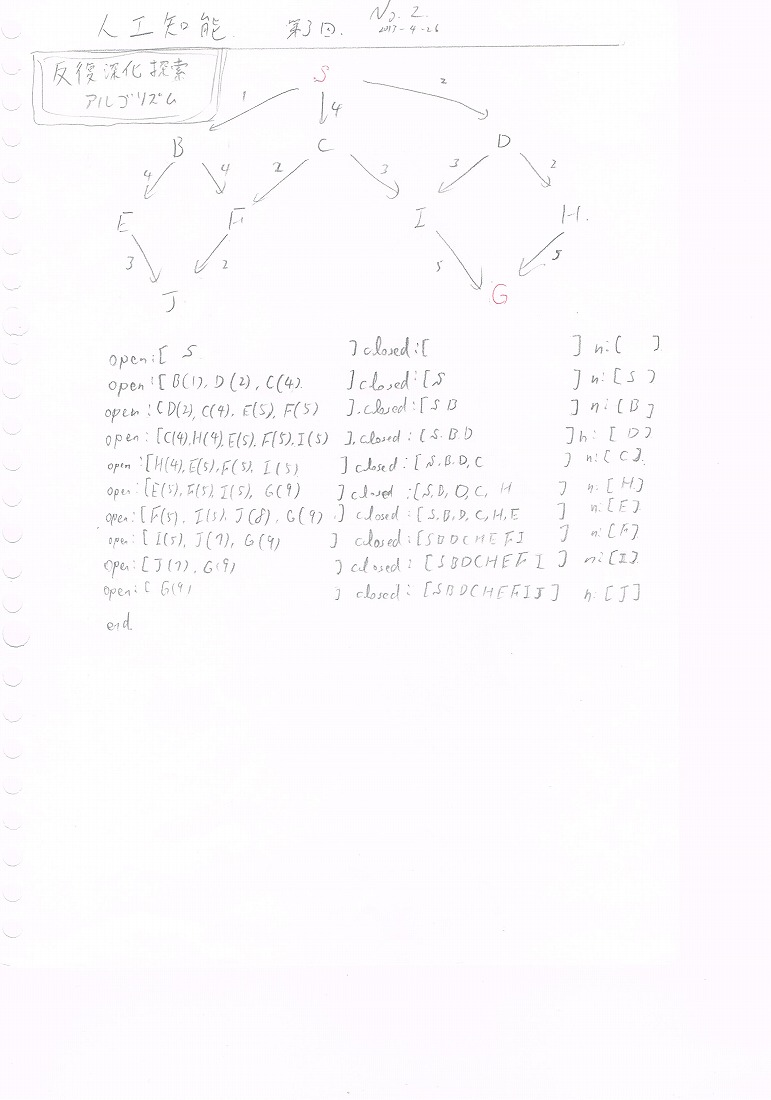 人工知能. 第3回. No. 2
2017-4-26
反復深化探索
アルゴリズム
S
1 4 2
B C D
4 4 2 3 3 2
E F I H.
3 2 5 5
J G
open:[ S ] closed:[ ] n:[ ]
open:[B(1), D(2), C(4). ] closed:[S ] n:[S]
open:[D(2), C(4), E(5), F(5) ]. closed:[S B ] n:[B]
open:[C(4),H(4),E(5),F(5),I(5) ]. closed:[S.B.D ] n:[D]
open:[H(4),E(5),F(5), I(5) ] closed:[S,B,D,C ] n:[C].
open:[E(5),F(5),I(5), G(9) ] closed:[S,B,D,C, H ] n:[H]
open:[F(5), I(5), J(8), G(9) ] closed:[S,B,D,C,H,E ] n:[E]
open:[I(5), J(7), G(9) ] closed:[SBDCHEFI ] n:[F]
open:[J(7), G(9) ] closed:[SBDCHEFI ] n:[I].
open:[ G(9) ] closed:[SBDCHEFIJ] n:[J]
end